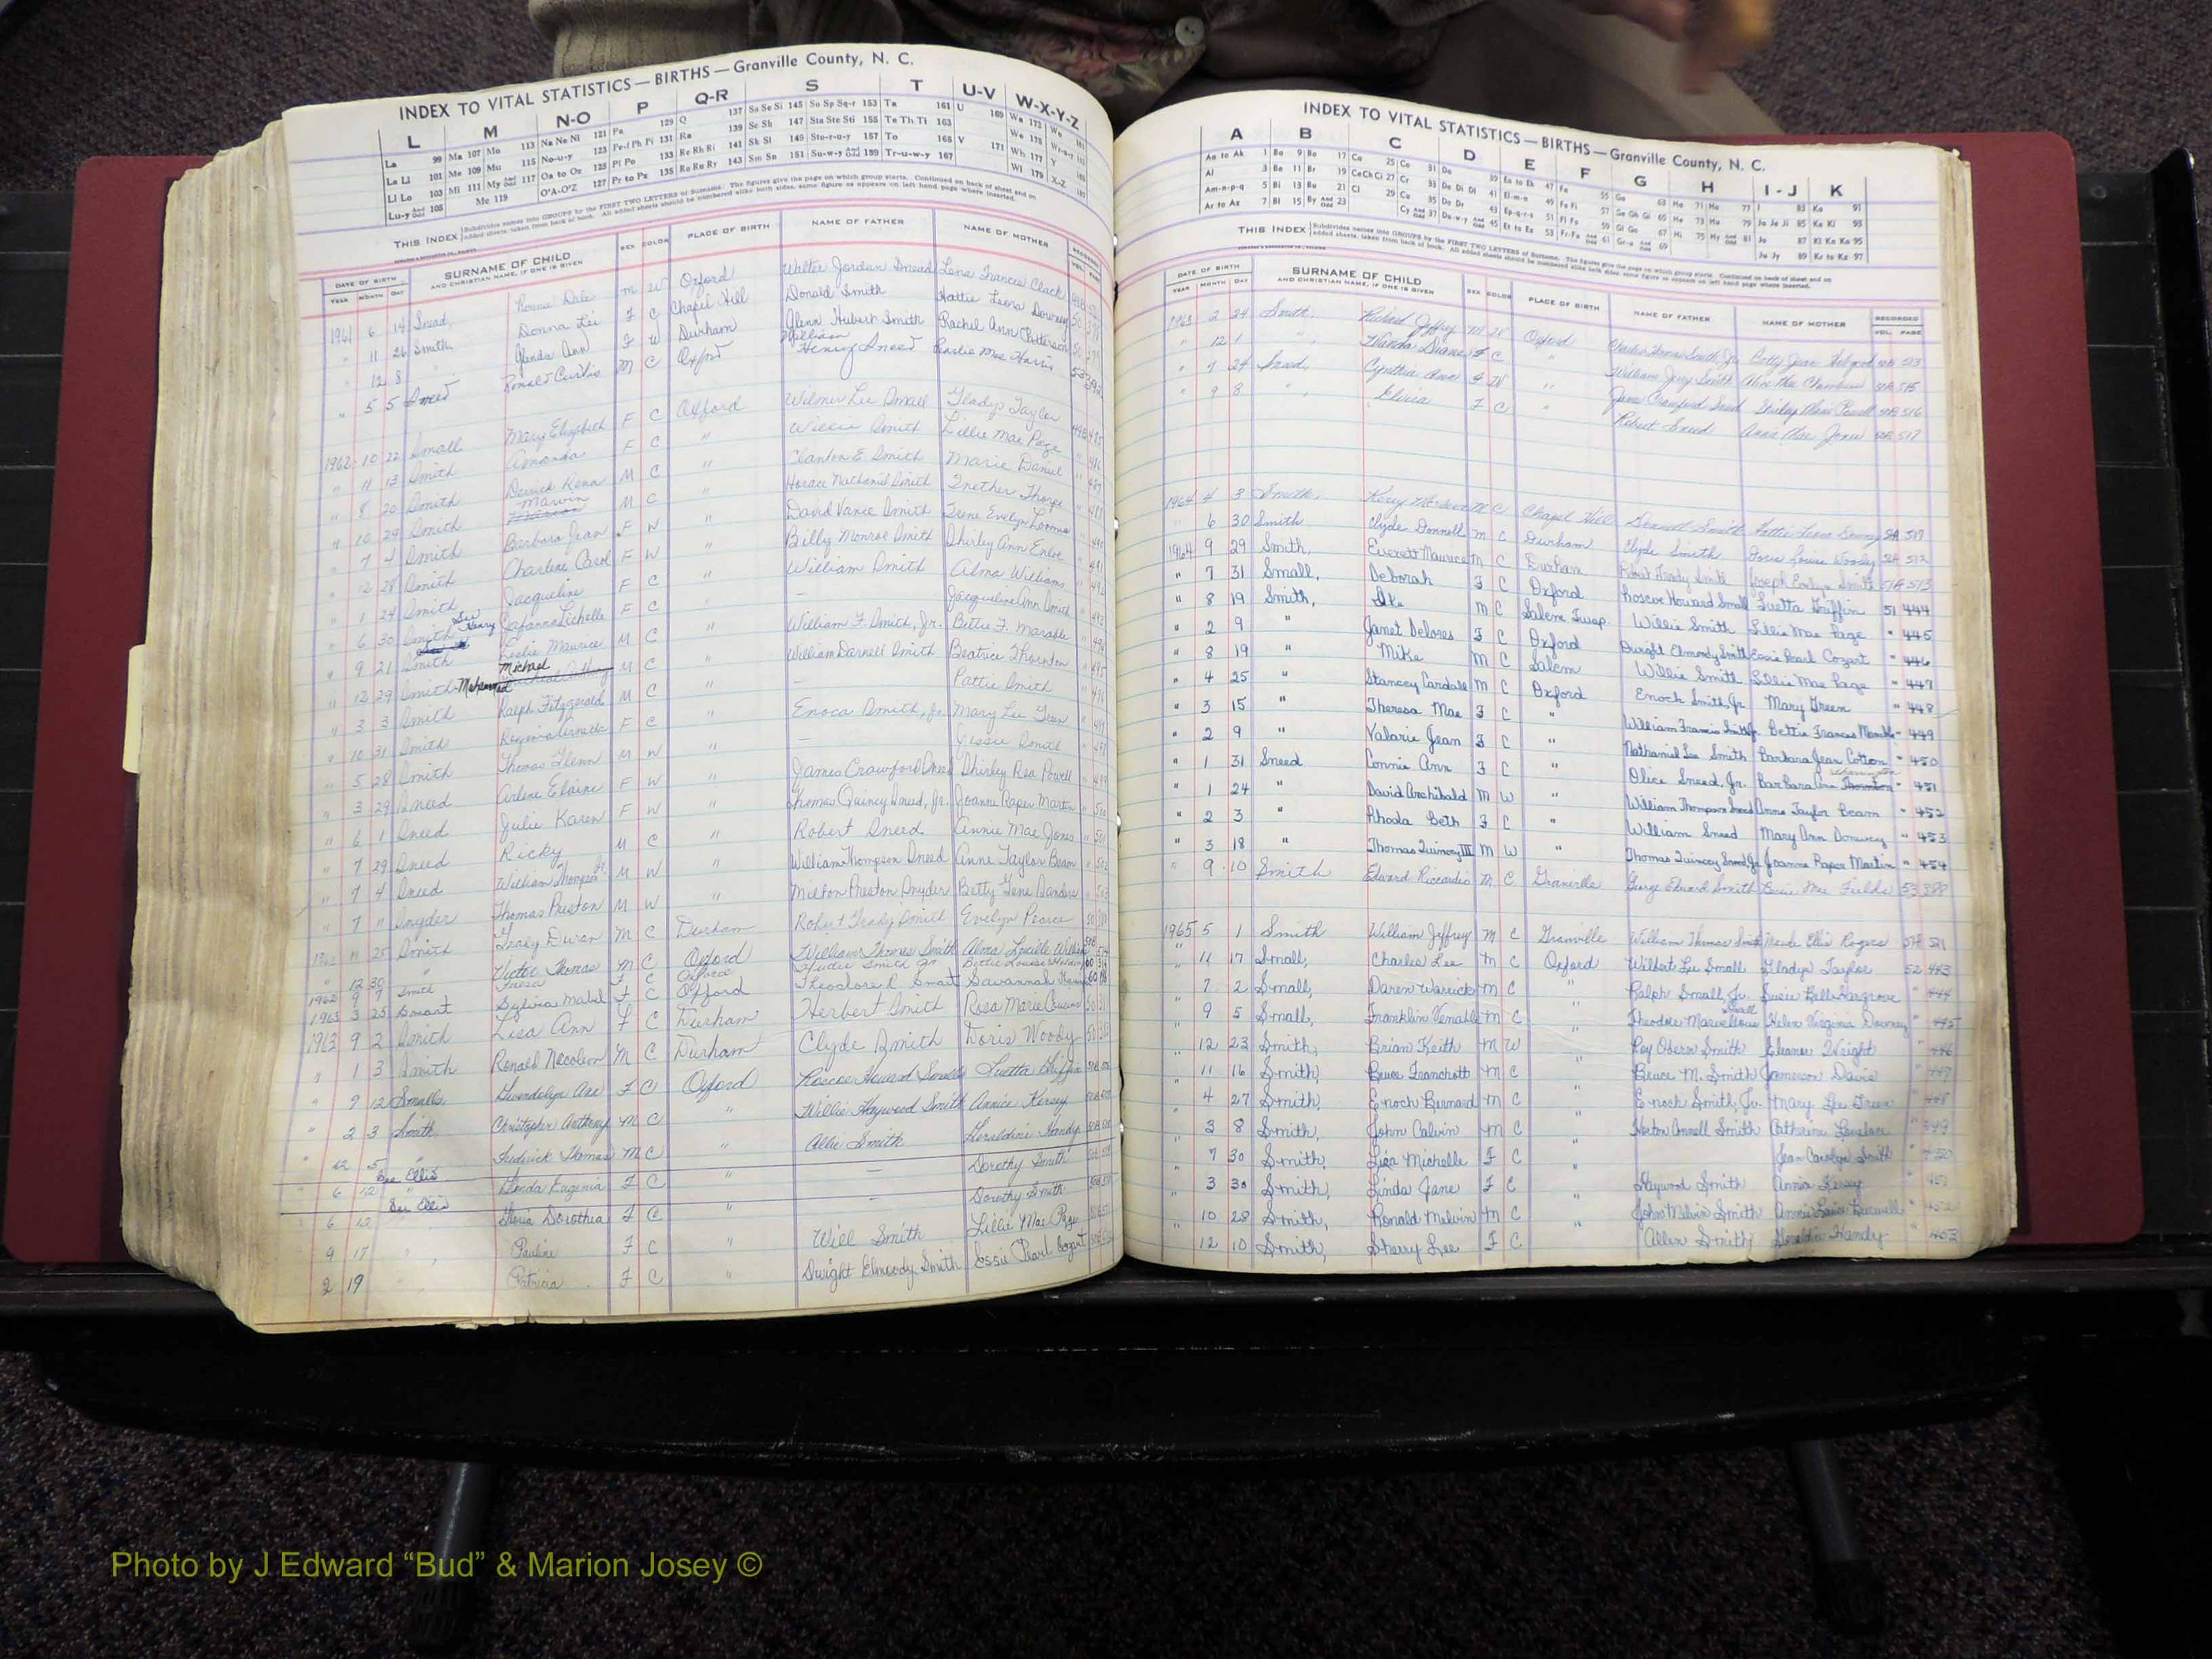 INDEX TO VITAL STATISTICS — BIRTHS — Granville County, N. C.
L M N-O P Q-R S T U-V W-X-Y-Z
La 99 Ma 107 Mo 113 Na Ne Ni 121 Pa 129 Q 137 Sa Se Si 145 So Sp Sq-r 153 Ta 161 U 169 Wa 173 Wo
Le Li 101 Me 109 Mu 115 No-u-y 123 Pe-f Ph Pi 131 Ra 139 Sc Sh 147 Sta Ste Sti 155 Te Th Ti 163 We 175
Ll Lo 103 Mi 111 My And Odd 117 Oa to Oz 125 Pl Po 133 Re Rh Ri 141 Sk Sl 149 Sto-r-u-y 157 To 165 V 171 Wh 177 Y
Lu-y And Odd 105 Mc 119 O'A-O'Z 127 Pr to Pz 135 Ro Ru Ry 143 Sm Sn 151 Su-w-y And Odd 159 Tr-u-w-y 167 Wi 179 X-Z
THIS INDEX Subdivides names into GROUPS by the FIRST TWO LETTERS of Surname. The figures give the page on which group starts. Continued on back of sheet and on
added sheets, taken from back of book. All added sheets should be numbered alike both sides, same figure as appears on left hand page where inserted.
DATE OF BIRTH SURNAME OF CHILD SEX COLOR PLACE OF BIRTH NAME OF FATHER NAME OF MOTHER RECORDED
YEAR MONTH DAY AND CHRISTIAN NAME, IF ONE IS GIVEN VOL. PAGE
1961 6 14 Snead, Ronnie Dale M W Oxford Walter Jordan Snead Lena Frances Clack
" 11 26 Smith, Donna Lei F C Chapel Hill Donald Smith Hattie Leona Downey
" 12 8 " Glenda Ann F W Durham Glenn Hubert Smith Rachel Ann Patterson
" 5 5 Sneed Ronald Curtis M C Oxford William Henry Sneed Pearlie Mae Harris
1962 10 22 Small Mary Elizabeth F C Oxford Wilmer Lee Small Gladys Taylor
" 11 13 Smith Amanda F C " Willie Smith Lillie Mae Page
" 8 20 Smith Derrick Kena M C " Clanton E. Smith Marie Daniel
" 10 29 Smith Marvin M C " Horace Nathaniel Smith Inether Thorpe
" 7 4 Smith Barbara Jean F W " David Vance Smith Irene Evelyn Loomis
" 12 28 Smith Charlene Carol F W " Billy Monroe Smith Shirley Ann Enloe
" 1 24 Smith Jacqueline F C " William Smith Alma Williams
" 6 30 Smith See Henry Lichelle F C " — Jacqueline Ann Smith
" 9 21 Smith Leslie Maurice M C " William F. Smith, Jr. Bettie F. Marable
" 12 29 Smith Michael M C " William Darnell Smith Beatrice Thornton
" 3 3 Smith Ralph Fitzgerald M C " — Pattie Smith
" 10 31 Smith F C " Enoca Smith, Jr. Mary Lee Green
" 5 28 Smith Thomas Glenn M W " — Jessie Smith
" 3 29 Sneed Arlene Elaine F W " James Crawford Sneed Shirley Rea Powell
" 6 1 Sneed Julie Karen F W " Thomas Quincy Sneed, Jr. Joanne Raper Martin
" 7 29 Sneed Ricky M C " Robert Sneed Annie Mae Jones
" 7 4 Sneed William Thompson Jr. M W " William Thompson Sneed Anne Taylor Beam
" 7 " Snyder Thomas Preston M W " Milton Preston Snyder Betty Gene Sanders
11 25 Smith Grady Duran M C Durham Robert Grady Smith Evelyn Pearce
" 12 30 " Victor Thomas M C Oxford Williams Thomas Smith Alma Lucille William
1962 9 7 Smith F C Oxford Smith Jr. Bettie Louise
1963 3 25 Smart Sylvia Mabel F C Oxford Theodore R. Smart Savannah
1963 9 2 Smith Lisa Ann F C Durham Herbert Smith Rosa Marie Cousins
" 1 3 Smith Ronald Necoleon M C Durham Clyde Smith Doris Woody
" 9 12 Smalls Gwendolyn Ann F C Oxford Roscoe Howard Smalls Luetta Griffin
" 2 3 Smith, Christopher Anthony M C " Willie Haywood Smith Annice Kersey
" 12 5 " Fredrick Thomas M C " Allie Smith Geraldine Handy
" 6 12 See Ellis " Glenda Eugenia F C " — Dorothy Smith
6 12 See Ellis Gloria Dorothea F C " — Dorothy Smith
9 17 " Pauline F C " Will Smith Lillie Mae Page
2 19 " Patricia F C " Dwight Elmoody Smith Essie Pearl Cozart
INDEX TO VITAL STATISTICS — BIRTHS — Granville County, N. C.
A B C D E F G H I - J K
Aa to Ak 1 Ba 9 Bo 17 Ca 25 Co 31 Da 39 Ea to Ek 47 Fa 55 Ga 63 Ha 71 Hu 77 I 83 Ka 91
Al 3 Be 11 Br 19 Ce Ch Ci 27 Cr 33 De Di Dl 41 El-m-n 49 Fe Fi 57 Ge Gh Gi 65 He 73 Hu 79 Ja Je Ji 85 Ke Ki 93
Am-n-p-q 5 Bi 13 Bu 21 Cl 29 Cu 35 Do Dr 43 Ep-q-r-s 51 Fl Fo 59 Gl Go 67 Hi 75 Hy And Odd 81 Jo 87 Kl Kn Ko 95
Ar to Az 7 Bl 15 By And Odd 23 Cy And Odd 37 Du-w-y And Odd 45 Et to Ez 53 Fr-Fu And Odd 61 Gr-u And Odd 69 Ju Jy 89 Kr to Kz 97
THIS INDEX Subdivides names into GROUPS by the FIRST TWO LETTERS of Surname. The figures give the page on which group starts. Continued on back of sheet and on
added sheets, taken from back of book. All added sheets should be numbered alike both sides, same figure as appears on left hand page where inserted.
DATE OF BIRTH SURNAME OF CHILD SEX COLOR PLACE OF BIRTH NAME OF FATHER NAME OF MOTHER RECORDED
YEAR MONTH DAY AND CHRISTIAN NAME, IF ONE IS GIVEN VOL. PAGE
1963 2 24 Smith, Richard Jeffrey M W Oxford Charles Thomas Smith Jr. Betty Jean Hobgood 50B 513
" 12 1 " Wanda Diane F C " William Jerry Smith Chambers 50B 515
" 7 24 Sneed, Cynthia Ann F W " James Crawford Sneed Shirley Powell 50B 516
" 9 8 " Elvira F C " Robert Sneed Annie Mae Jones 50B 517
1964 4 3 Smith, Kerry M C Chapel Hill Donnell Smith Hattie Leona Downey
6 30 Smith Clyde Donnell M C Durham Clyde Smith Doris Louise Woody 512
1964 9 29 Smith, Everett Maurice M C Durham Robert Grady Smith Joseph Evelyn Smith 513
" 7 31 Small, Deborah F C Oxford Roscoe Howard Small Luetta Griffin 51 444
" 8 19 Smith, Ike M C Salem Twsp. Willie Smith Lillie Mae Page " 445
" 2 9 " Janet Delores F C Oxford Dwight Elmoody Smith Essie Pearl Cozart " 446
" 8 19 " Mike M C Salem Willie Smith Lillie Mae Page " 447
" 4 25 " Stancey Cardale M C Oxford Enoch Smith, Jr. Mary Green " 448
" 3 15 " Theresa Mae F C " William Francis Smith Jr. Bettie Frances Marable " 449
" 2 9 " Valarie Jean F C " Nathaniel Lee Smith Barbara Jean Cotton " 450
" 1 31 Sneed Connie Ann F C " Olice Sneed, Jr. Barbara Ann Thornton " 451
" 1 24 " David Archibald M W " William Thompson Sneed Anne Taylor Beam " 452
" 2 3 " Rhoda Beth F C " William Sneed Mary Ann Downey " 453
" 3 18 " Thomas Quincy III M W " Thomas Quincy Sneed Jr. Joanne Raper Martin " 454
" 9 10 Smith Edward Riccardo M C Granville George Edward Smith Bessie Mae Fields 53 388
1965 5 1 Smith William Jeffrey M C Granville William Thomas Smith Maude Ellis Rogers
" 11 17 Small, Charles Lee M C Oxford Wilbert Lee Small Gladys Taylor 52 443
7 2 Small, Daren Warrick M C " Ralph Small, Jr. Susie Belle Hargrove " 444
" 9 5 Small, Franklin Venable M C " Theodore Marvellous Small Helen Virginia Downey " 445
" 12 23 Smith, Brian Keith M W Roy Obern Smith Eleanor Wright " 446
" 11 16 Smith, Bruce Franchott M C " Bruce M. Smith Jamerson Davis " 447
" 4 27 Smith, Enoch Bernard M C " Enoch Smith, Jr. Mary Lee Green " 448
" 3 8 Smith, John Calvin M C Horton Annell Smith Catherine Lovelace " 449
" 7 30 Smith, Lisa Michelle F C " Jean Carolyn Smith " 450
" 3 30 Smith, Linda Jane F C Haywood Smith Annice Kersey " 451
" 10 28 Smith, Ronald Melvin M C " John Melvin Smith Annie Burwell " 452
" 12 10 Smith, Sherry Lee F C " Allen Smith Geraldine Handy 453
Photo by J Edward “Bud” & Marion Josey ©